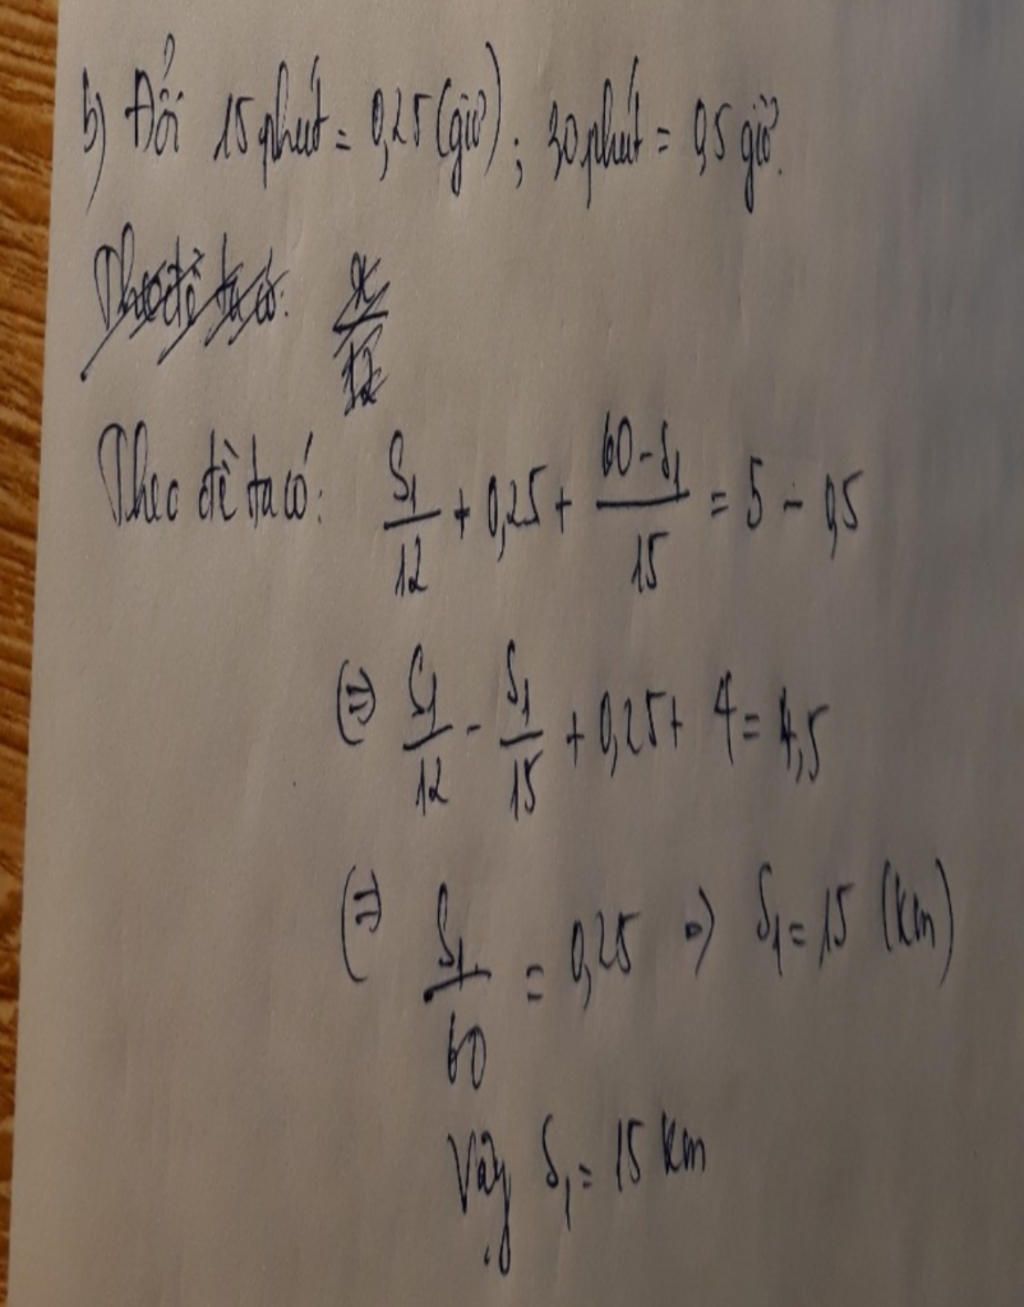 b) Đổi 15 phút = 0,25 (giờ); 30 phút = 0,5 giờ.
Theo đề ta có: x/12
Theo đề ta có: S₁/12 + 0,25 + (60 - S₁)/15 = 5 - 0,5
(=) S₁/12 - S₁/15 + 0,25 + 4 = 4,5
(=) S₁/60 = 0,25 => S₁ = 15 (km)
Vậy S₁ = 15 km